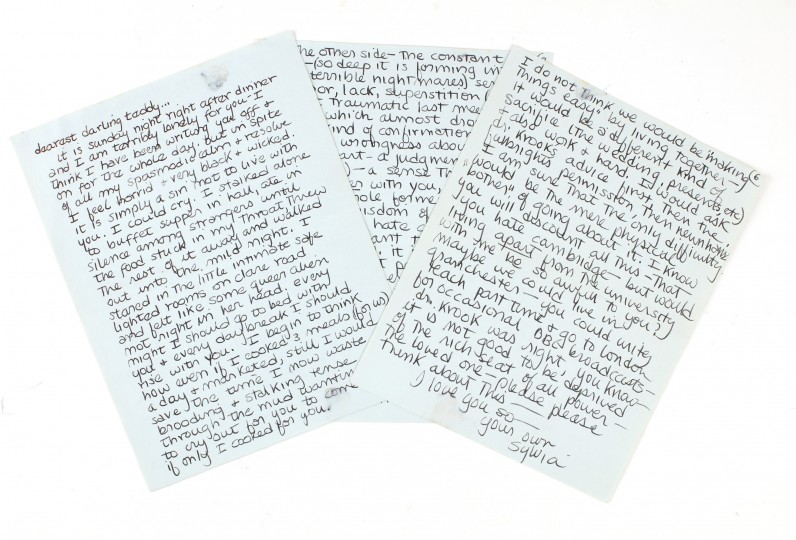 dearest darling teddy...
it is sunday night right after dinner
and I am terribly lonely for you - I
think I have been writing you off &
on for the whole day, but in spite
of all my spasmodic calm & resolve
I feel horrid & very black & wicked.
it is simply a sin not to live with
you. I could cry. I stalked alone
to buffet supper in hall, ate in
silence among strangers until
the food stuck in my throat, threw
the rest of it away and walked
out into the mild night. I
stared in the little intimate safe
lighted rooms on clare road
and felt like some queer alien
not right in her head. every
night I should go to bed with
you & every day break I should
rise with you. I begin to think
how even if I cooked 3 meals (for us)
a day & marketed, still I would
save the time I now waste
brooding & stalking tense
through the mud wanting
to cry out for you to come
if only I cooked for you.
he other side - the constant
- (so deep it is forming in
terrible nightmares) sen
or, lack, superstition
traumatic last mee
which almost dro
ind of confirmation
wrongness abou
art - a judgmen
- a sense th
es with you,
ole forme
isdom o
hate
nt t
I do not think we would be making
things easy by living together -
it would be a different kind of
sacrifice (the wedding, presents, etc)
& also work & hard. I would ask
dr. krook's advice first, then the
fulbright's permission, then newnham's
I am sure that the only difficulty
would be the mere physical
"bother" of going about it. I know
you will discount all this - that
you hate cambridge - but would
living apart from the university
with me be so awful to you?
maybe we could live in
granchester - you could write,
teach part time & go to london
for occasional BBC broadcasts -
dr. krook was right, you know -
it is not good to be deprived
of the rich seat of all power -
the loved one - please please
think about this
I love you so -
your own
Sylvia